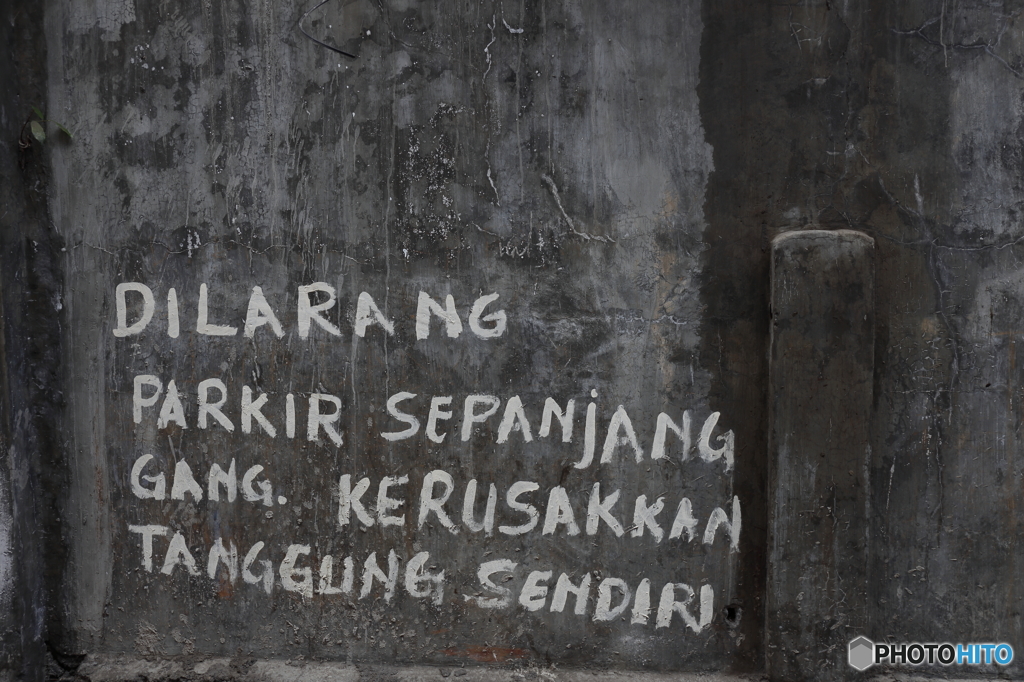 DILARANG
PARKIR SEPANjANG
GANG. KERUSAKKAN
TANGGUNG SENDIRI
PHOTOHITO